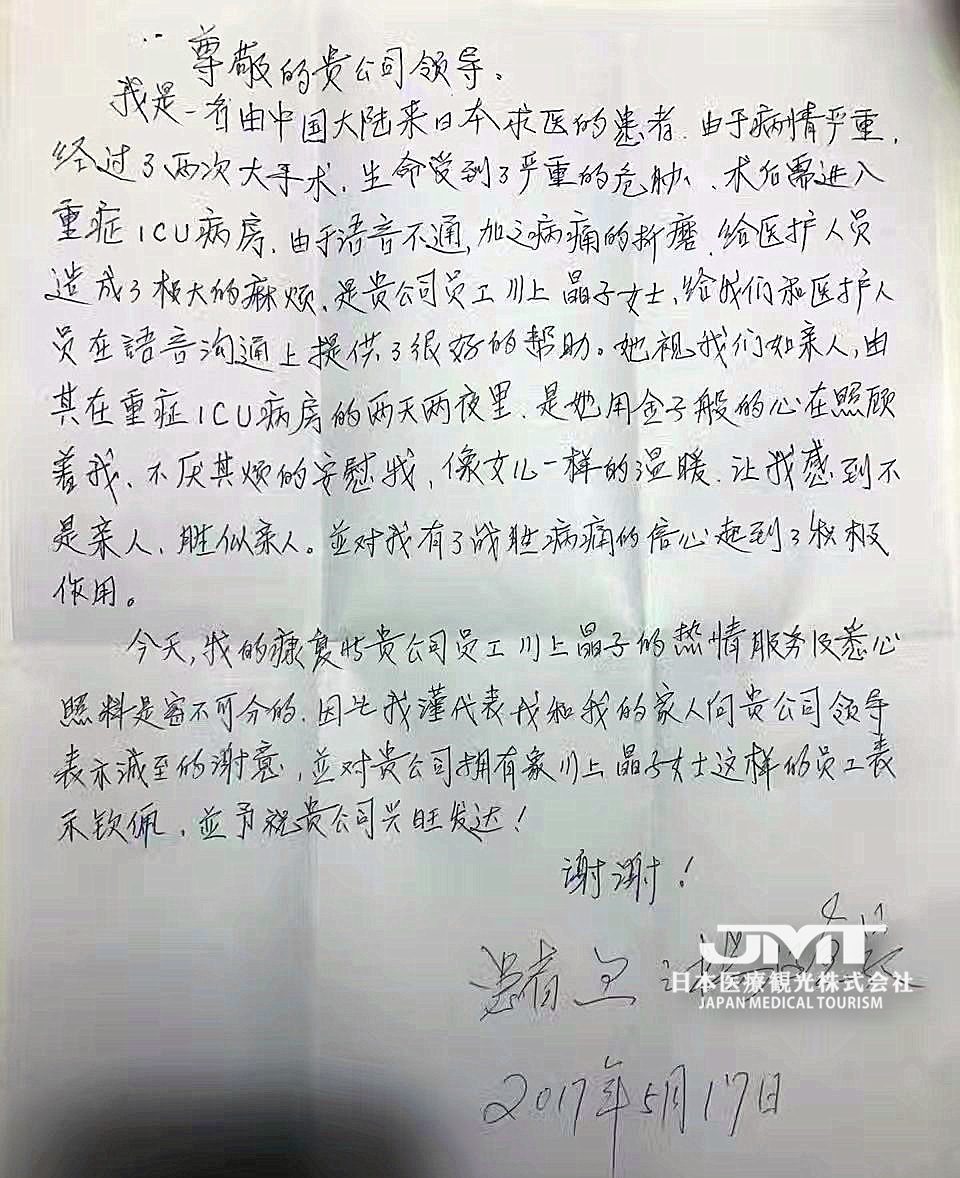 尊敬的贵公司领导。
我是一名由中国大陆来日本求医的患者.由于病情严重,
经过了两次大手术.生命受到了严重的危胁、.术后需进入
重症ICU病房.由于语音不通,加之病痛的折磨.给医护人员
造成了极大的麻烦.是贵公司员工川上晶子女士,给我们和医护人
员在語音沟通上提供了很好的帮助。她视我们如亲人,由
其在重症ICU病房的两天两夜里.是她用金子般的心在照顾
着我、不厌其烦的安慰我,像女儿一样的温暖.让我感到不
是亲人、胜似亲人。並对我有了战胜病痛的信心起到了积极
作用。
今天,我的康复与贵公司员工川上晶子的热情服务及悉心
照料是密不可分的.因此我谨代表我和我的家人向贵公司领导
表示诚至的谢意,並对贵公司拥有象川上晶子女士这样的员工表
示钦佩,並予祝贵公司兴旺发达!
谢谢!
患者 王
JMT
日本医療観光株式会社
JAPAN MEDICAL TOURISM
2017年5月17日